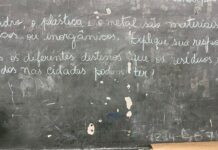 dro, o plástico e o metal são materiais
cos ou inorgânicos. Explique sua respo
os diferentes destinos que os resíduos
dos nas cidades podem ter)